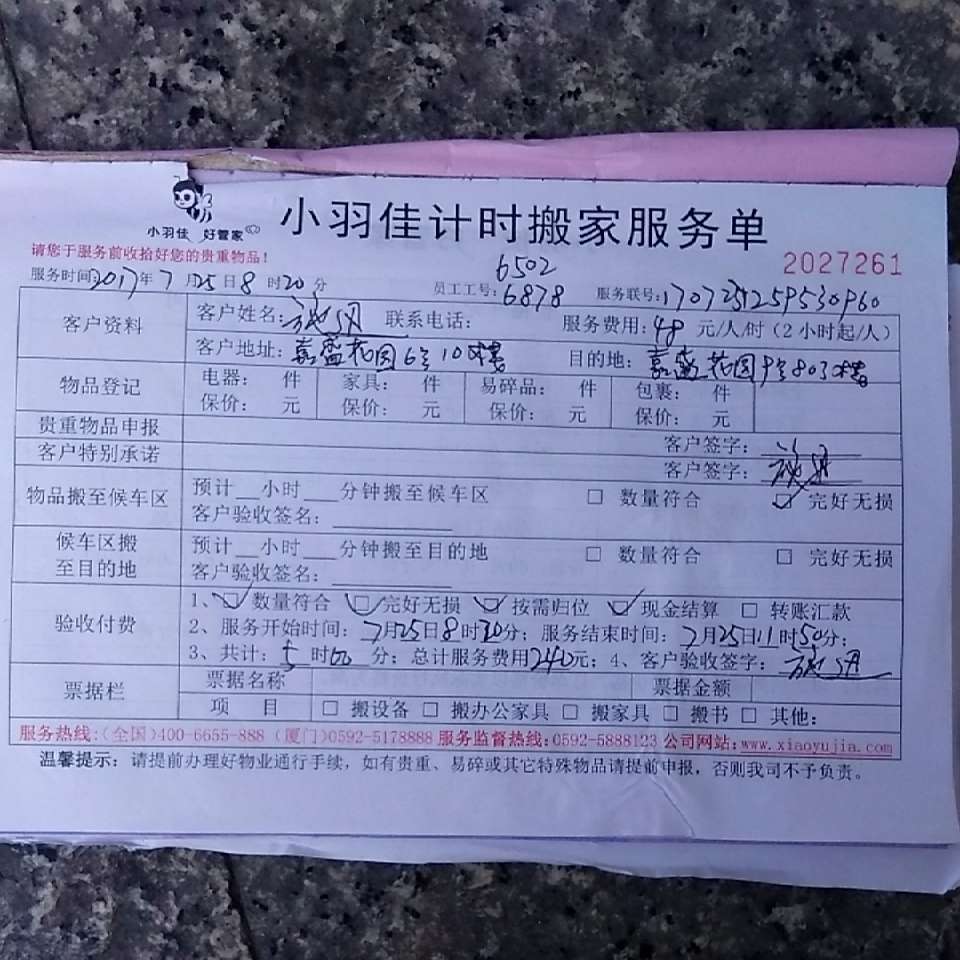 小羽佳 好管家
小羽佳计时搬家服务单
请您于服务前收拾好您的贵重物品!
2027261
6502
服务时间:2017年7月25日8时20分 员工工号:6878 服务联号:1707251259530960
客户资料
客户姓名: 联系电话: 服务费用:48元/人/时(2小时起/人)
客户地址:嘉盛花园6号10楼 目的地:嘉盛花园9号803楼
物品登记
电器: 件 家具: 件 易碎品: 件 包裹: 件
保价: 元 保价: 元 保价: 元 保价: 元
贵重物品申报 客户签字:
客户特别承诺 客户签字:
物品搬至候车区
预计__小时___分钟搬至候车区 □ 数量符合 ☑ 完好无损
客户验收签名:
候车区搬
至目的地
预计__小时___分钟搬至目的地 □ 数量符合 □ 完好无损
客户验收签名:
验收付费
1、☑数量符合 ☑完好无损 ☑按需归位 ☑现金结算 □ 转账汇款
2、服务开始时间:7月25日8时20分;服务结束时间:7月25日11时50分;
3、共计:5时00分;总计服务费用240元;4、客户验收签字:
票据栏
票据名称 票据金额
项 目 □ 搬设备 □ 搬办公家具 □ 搬家具 □ 搬书 □ 其他:
服务热线:(全国)400-6655-888 (厦门)0592-5178888 服务监督热线:0592-5888123 公司网站:www.xiaoyujia.com
温馨提示:请提前办理好物业通行手续,如有贵重、易碎或其它特殊物品请提前申报,否则我司不予负责。